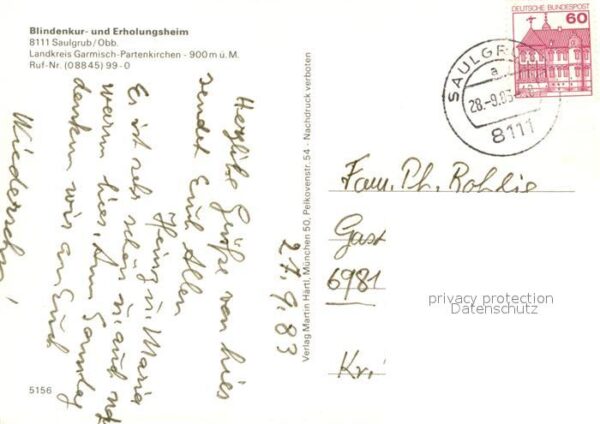 Blindenkur- und Erholungsheim
8111 Saulgrub/Obb.
Landkreis Garmisch-Partenkirchen - 900 m ü. M.
Ruf-Nr. (08845) 99-0
27.9.83
Herzliche Grüße von hier
sendet Euch Allen
Heinz u. Maria
Es ist sehr schön u. auch noch
warm hier. Am Samstag
denken wir an Euch
Wiedersehn!
5156
Verlag Martin Härtl, München 50, Pelkovenstr. 54 - Nachdruck verboten
DEUTSCHE BUNDESPOST
60
SAULGR
a
28.-9.83
8111
Fam. Ph. Rohlie
Gast
6981
Kr
privacy protection
Datenschutz